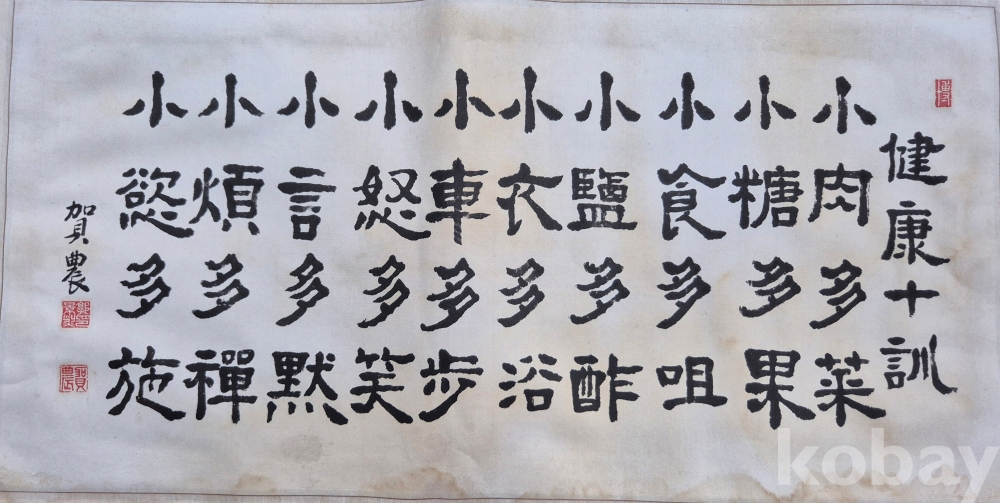 健康十訓
小肉多菜
小糖多果
小食多咀
小鹽多酢
小衣多浴
小車多步
小怒多笑
小言多默
小煩多禪
小慾多施
賀農
賀農
kobay